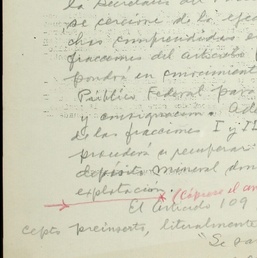 la Secretaría del
se cercioró de lo
chas comprendidas e
fracciones del artículo
pondrá en conocimient
Público Federal para
y consignación. Ade
de las fracciones I y II
procederá a recuperar
depósito mineral don
explotación.
(Cópiese el
El Artículo 109
cepto preinserto, literalmente
"Se